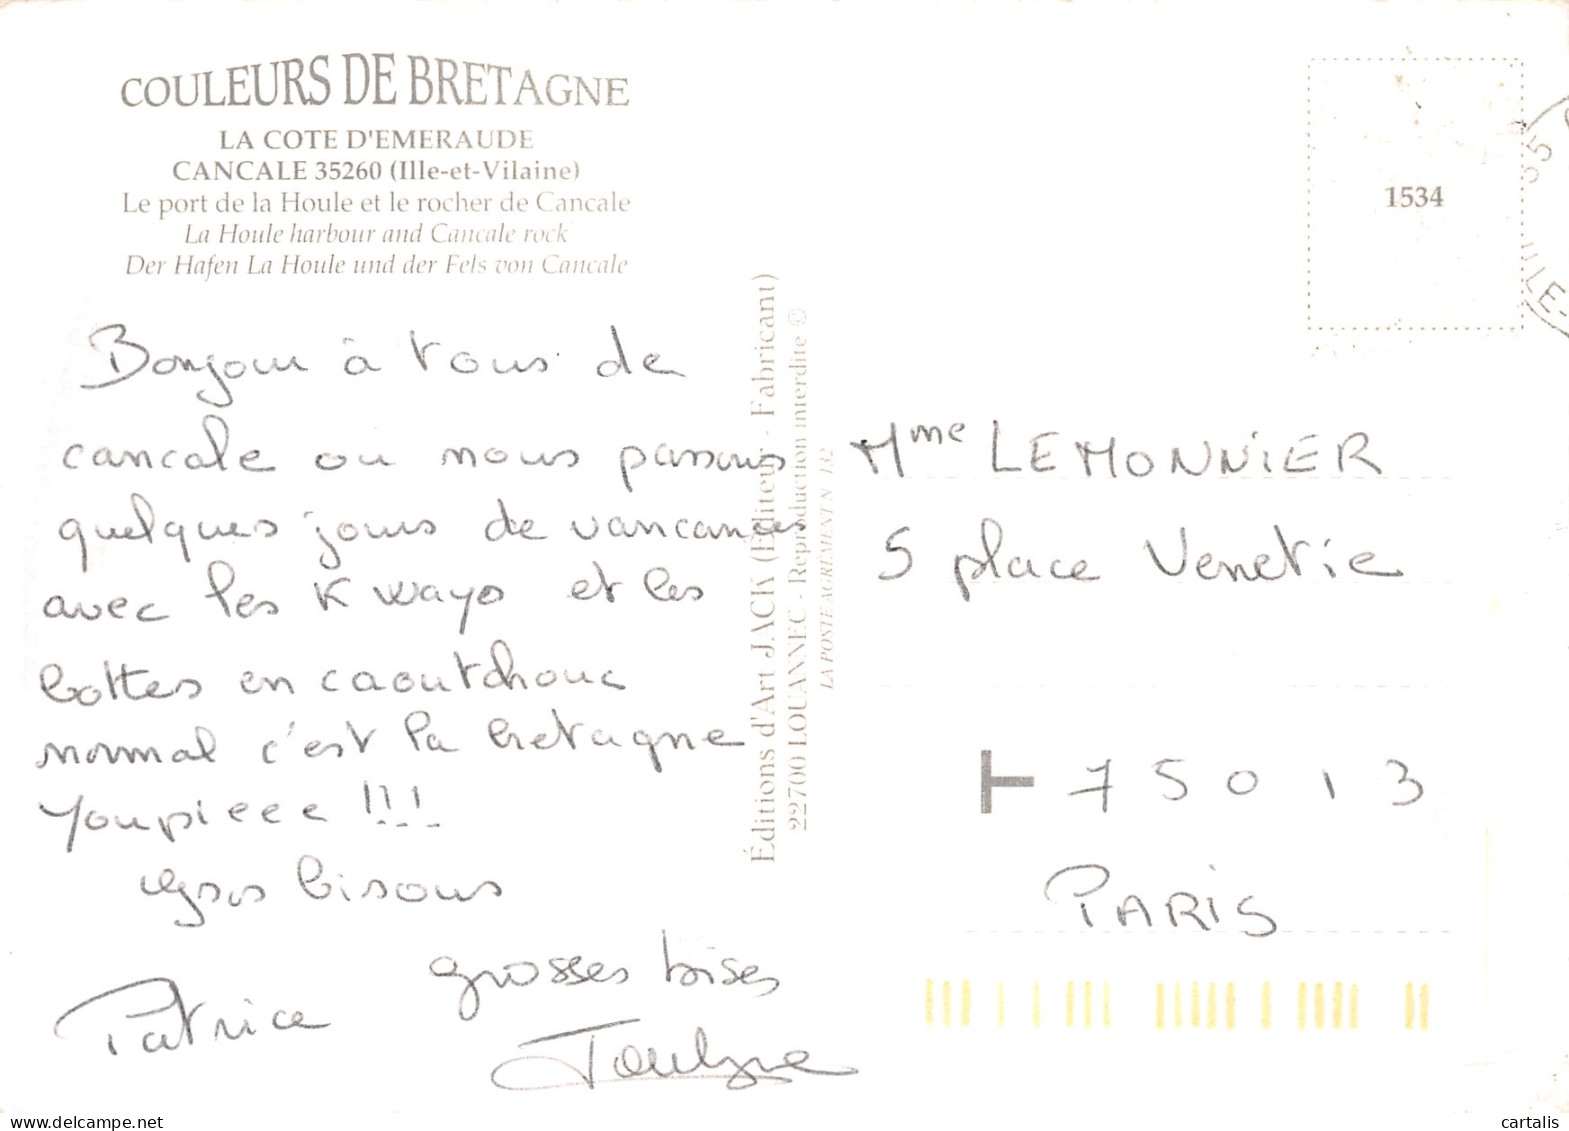 COULEURS DE BRETAGNE
LA COTE D'EMERAUDE
CANCALE 35260 (Ille-et-Vilaine)
Le port de la Houle et le rocher de Cancale
La Houle harbour and Cancale rock
Der Hafen La Houle und der Fels von Cancale
1534
35
ILLE-
Bonjour à tous de
cancale ou nous passons
quelques jours de vancances
avec les K ways et les
bottes en caoutchouc
normal c'est la bretagne
Youpieee !!!
Gros bisous
grosses bises
Patrice
Éditions d'Art JACK (Éditeur - Fabricant)
22700 LOUANNEC - Reproduction interdite ©
LA POSTE AGRÉMENT N° 132
Mme LEMONNIER
5 place Venetie
T 75013
PARIS
cartalis